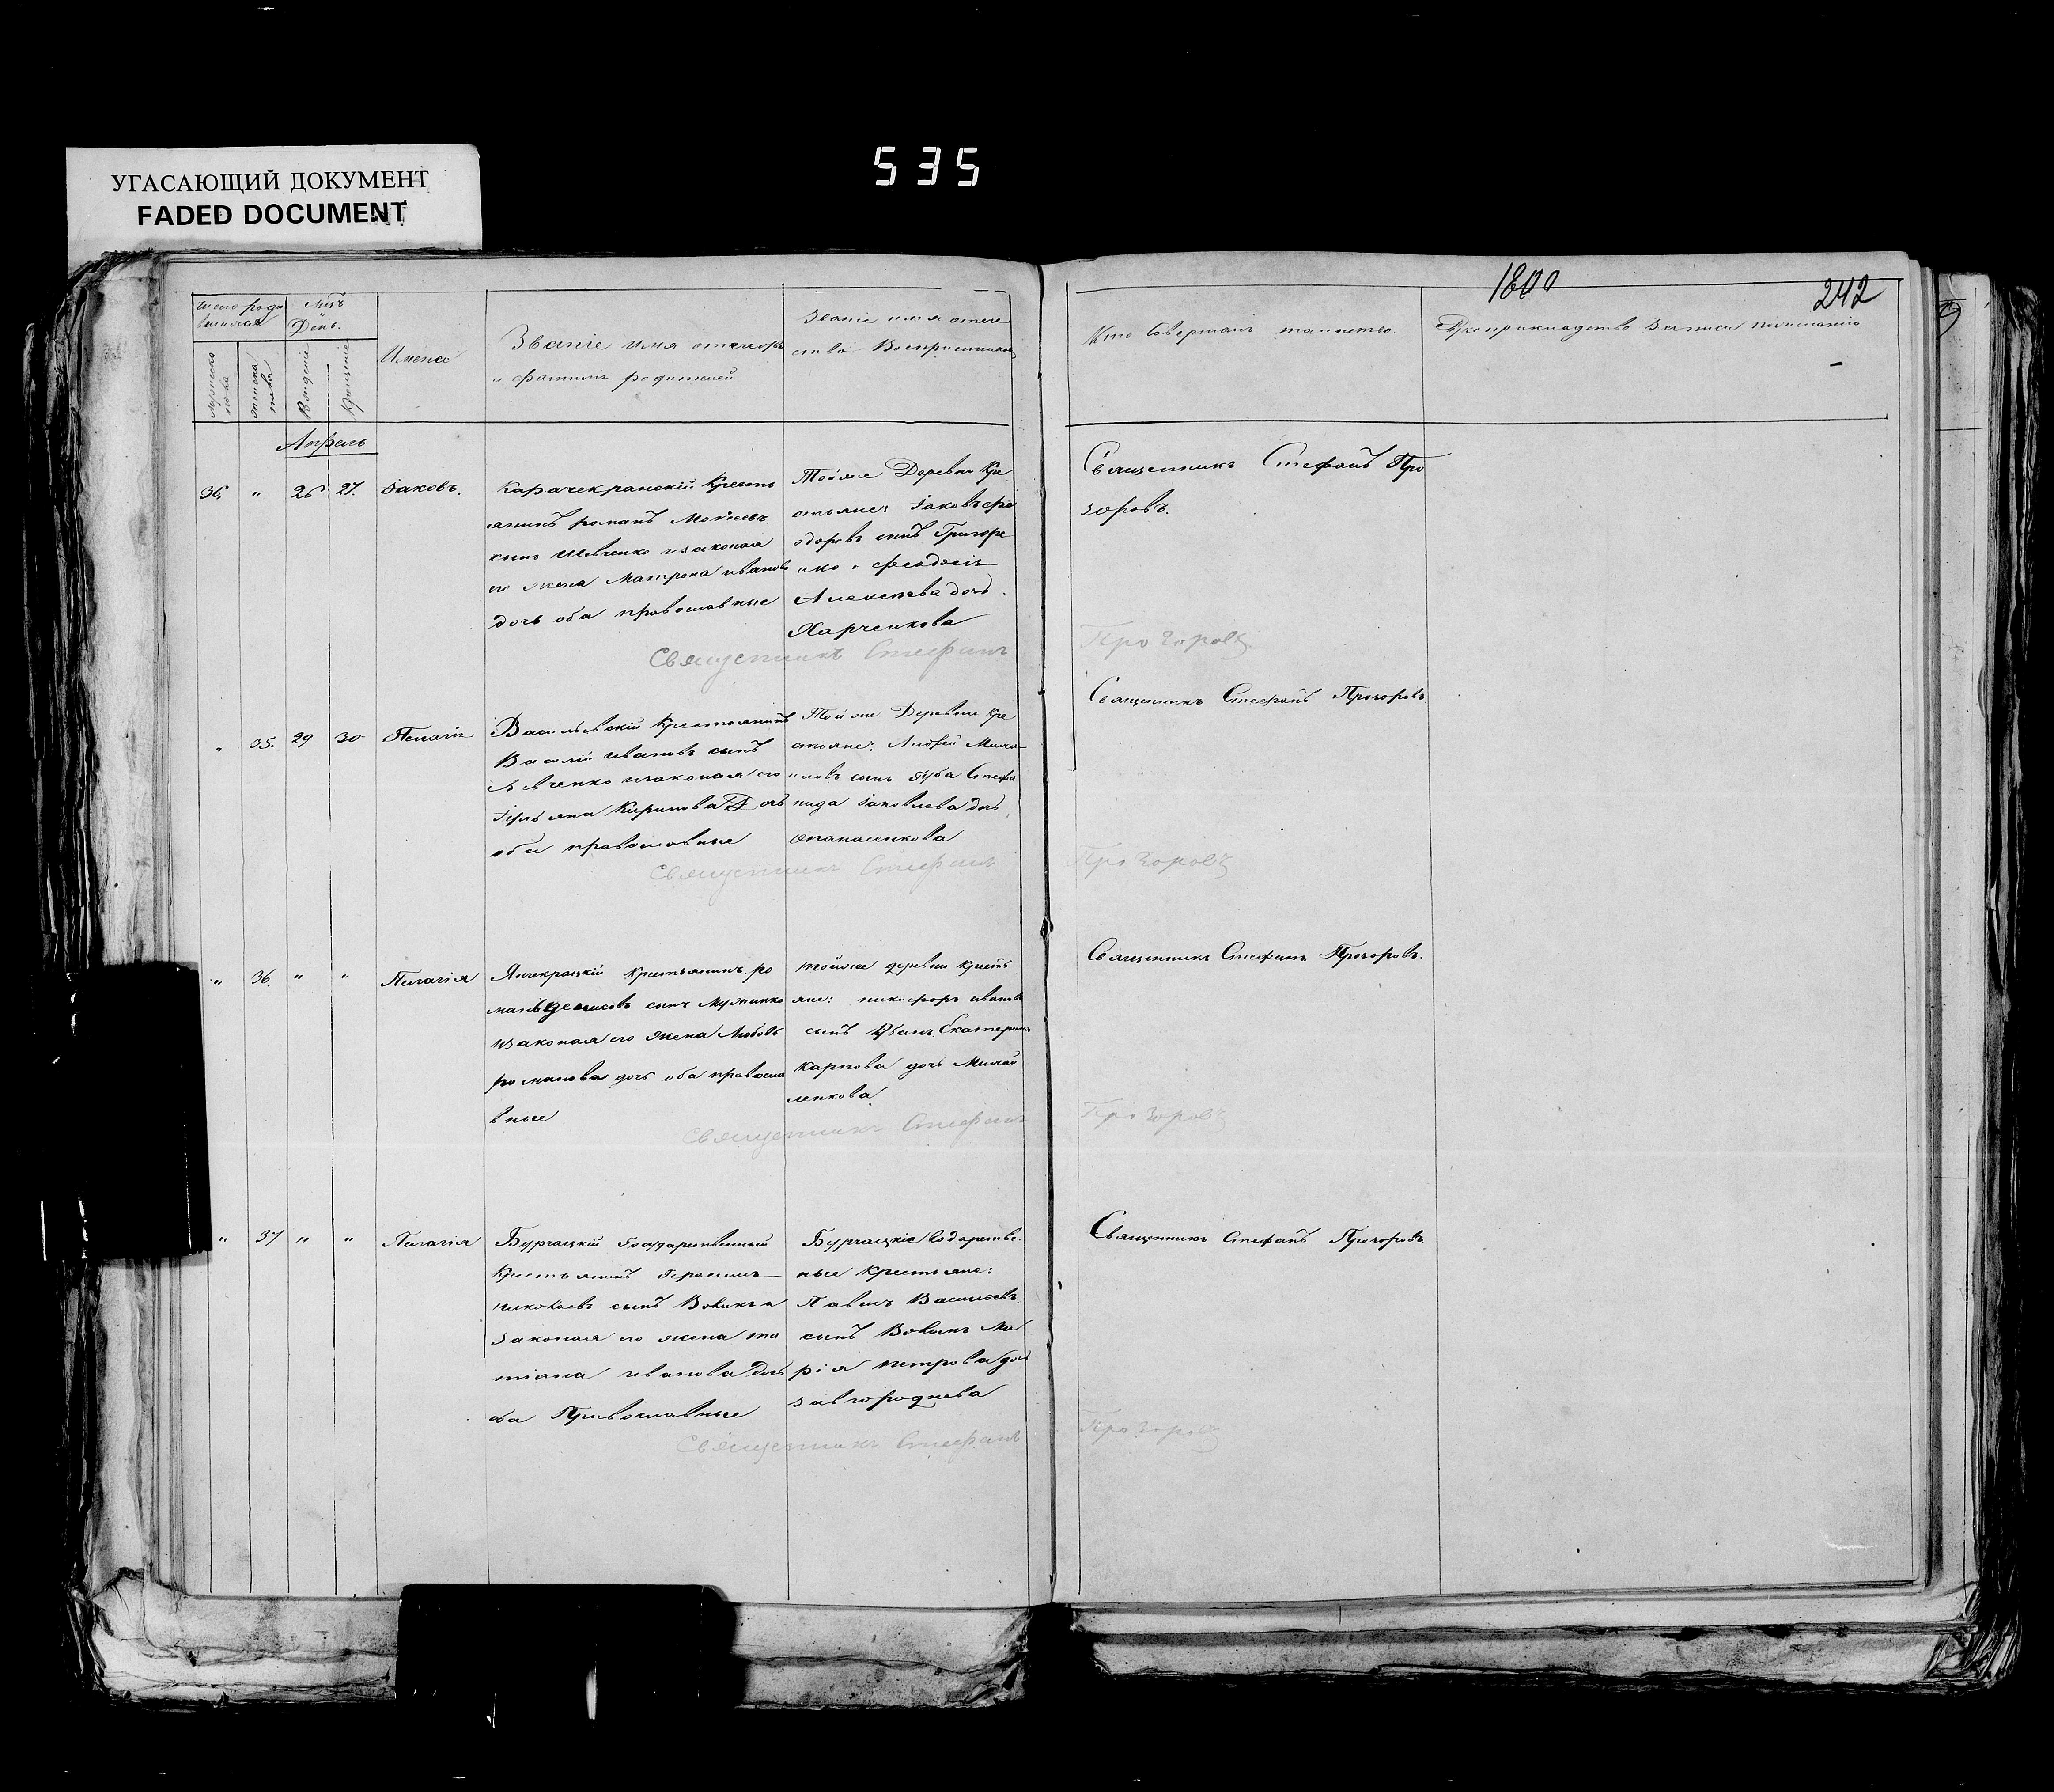 УГАСАЮЩИЙ ДОКУМЕНТ
FADED DOCUMENT
535
1800
242
Число роди
вшихся
Мць
День.
Имена
Званіе имя отчество
и фамилия родителей
Званіе имя отче
ство Воспріемник
Рожденіе
Крещеніе
Кто Совершалъ таинство.
Рукоприкладство записи по желанію
Апрель
36. " 26 27. Іаковъ.
Карачекракскій Кресть
янинъ романъ Моисеевъ
сынъ Шевченко изаконая
его жена Матрона иванов
дочь оба православные
Тойже Деревни Кре
стьяне: Іаковъ фе
одоровъ сынъ Григоре
нко и феодосія
Алексеева дочь
Харченкова
Священникъ Стефанъ Про
зоровъ.
Священникъ Стефанъ
Прозоровъ
" 35. 29 30 Пелагія
Васильевскій Крестьянинъ
Василій ивановъ сынъ
Левченко изаконая его
Кирилова Дочь
оба православные
Тойже Деревни Кре
стьяне: Андрей Миха
иловъ сынъ Губа Стефа
нида Іаковлева дочь
Опанасенкова
Священникъ Стефанъ Прозоровъ
Священникъ Стефанъ
Прозоровъ
" 36. " " Пелагія
Янчекрацкій Крестьянинъ ро
манъ денисовъ сынъ
изаконая его жена Любовь
романова дочь оба правосла
вные
тойже деревни Кресть
яне: никифоръ ивановъ
сынъ Екатерина
Карпова дочь Михай
ленкова
Священникъ Стефанъ Прозоровъ.
Священникъ Стефанъ
Прозоровъ
" 37 " " Пелагія
Бурчацкій Государственный
Крестьянинъ Герасимъ
николаевъ сынъ Вовкъ и
законая его жена та
тіана иванова Дочь
оба Православные
Бурчацкіе Государстве
ные Крестьяне:
Павелъ Васильевъ
сынъ Вовкъ Ма
рія петрова дочь
завгороднева
Священникъ Стефанъ Прозоровъ
Священникъ Стефанъ
Прозоровъ